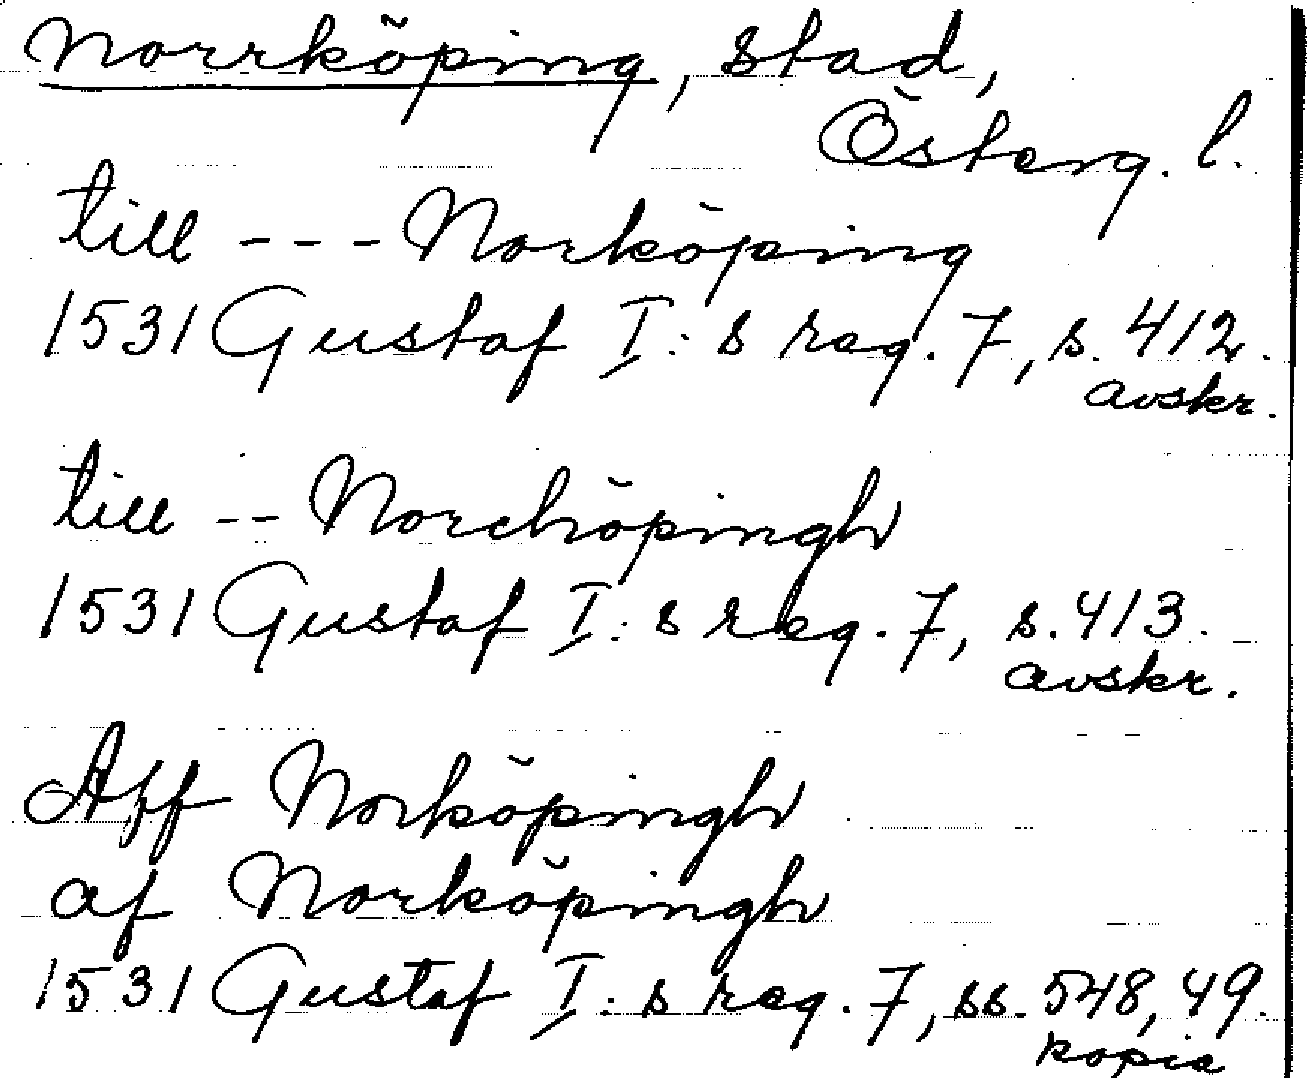 Norrköping, stad,
Österg. l.
till --- Norköping
1531 Gustaf I:s reg. 7, s. 412.
avskr.
till -- Norchöpingh
1531 Gustaf I:s reg. 7, s. 413.
avskr.
Aff Norköpingh
af Norköpingh
1531 Gustaf I:s reg. 7, ss. 548, 49.
kopia